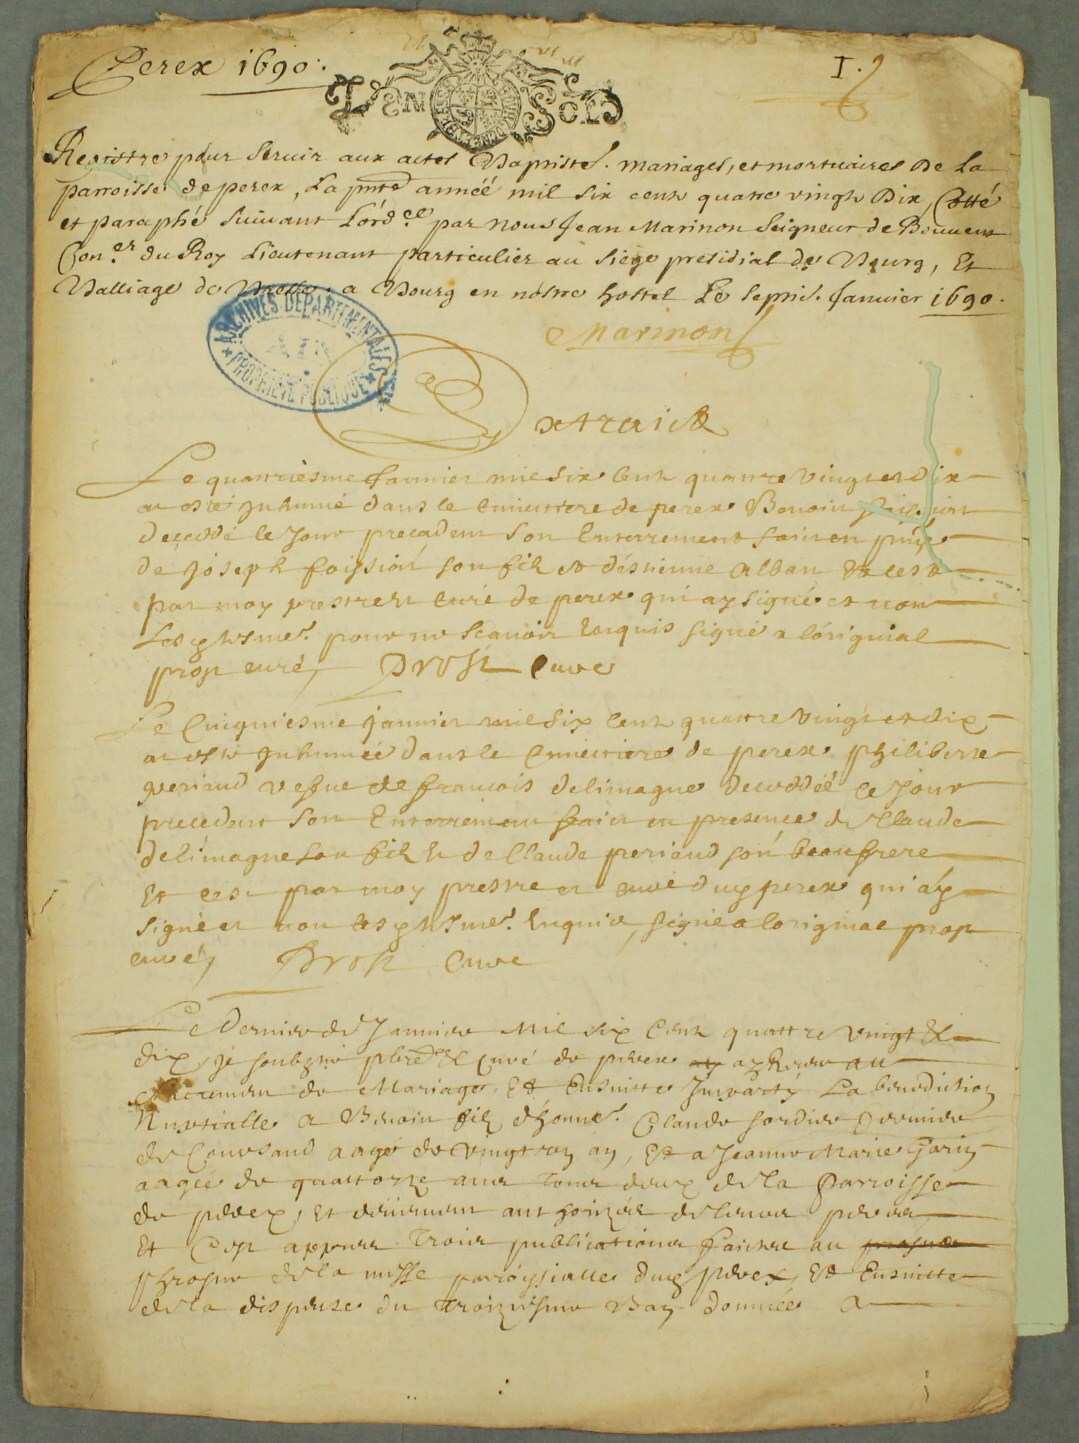 Perex 1690.
I.
Registre pour servir aux actes Baptistes. mariages, et mortuaires de la
parroisse de perex, la pnte année mil six cents quatre vingts dix, Cotté
et paraphé suivant l'ord.ce par nous Jean Marinon Seigneur de Bouvent
Con.er du Roy Lieutenant particulier au siege presidial de Bourg, Et
Balliage de Bresse, a Bourg en nostre hostel Le sept.e Janvier 1690.
Marinon
ARCHIVES DEPARTEMENTALES
AIN
PROPRIÉTÉ PUBLIQUE
Extraict
Le quattriesme Janvier mil six cent quattre vingt et dix
a esté Inhumé dans le cimettere de perex Benoit
decedé le Jour precedent son Enterrement fait en pnce
de Joseph foission son fils et d'éstienne alban et cest
par moy prestre et curé de perex qui ay signé et non
Les ptsmes. pour ne scavoir Enquis signé a l'original
prop curé, Drost Curé
Le Cinquiesme janvier mil six cent quattre vingt et dix
a esté Inhumée dans le Cimettiere de perex philiberte
periaud vefve de françois delimagne decedéé le Jour
precedent son Enterrement fait en presence de Claude
delimagne son fils Et de Claude periaud son beaufrere
Et cest par moy prestre et curé dud perex qui ay
signé et non les ptsmes. Enquis, signé a loriginal prop
curé, Drost Curé
Le Dernier de Janvier Mil six Cent quattre vingt &
dix, je soubsigné curé de perex ay receu au
Sacrement de Mariage, Et Ensuitte Imparty La benediction
Nuptialle a Benoit fils d'honne. Claude
de Coursaud aagé de vingt ans, Et a Jeanne Marie Gorin
aagée de quattorze ans tous deux de la Parroisse
de perex, Et deüement authorizés de leurs peres,
Et Ce appres Trois publications faictes au
prosne de la messe parroyssialle dud perex, Et Ensuitte
de la dispense du Troiziesme Ban donnée a